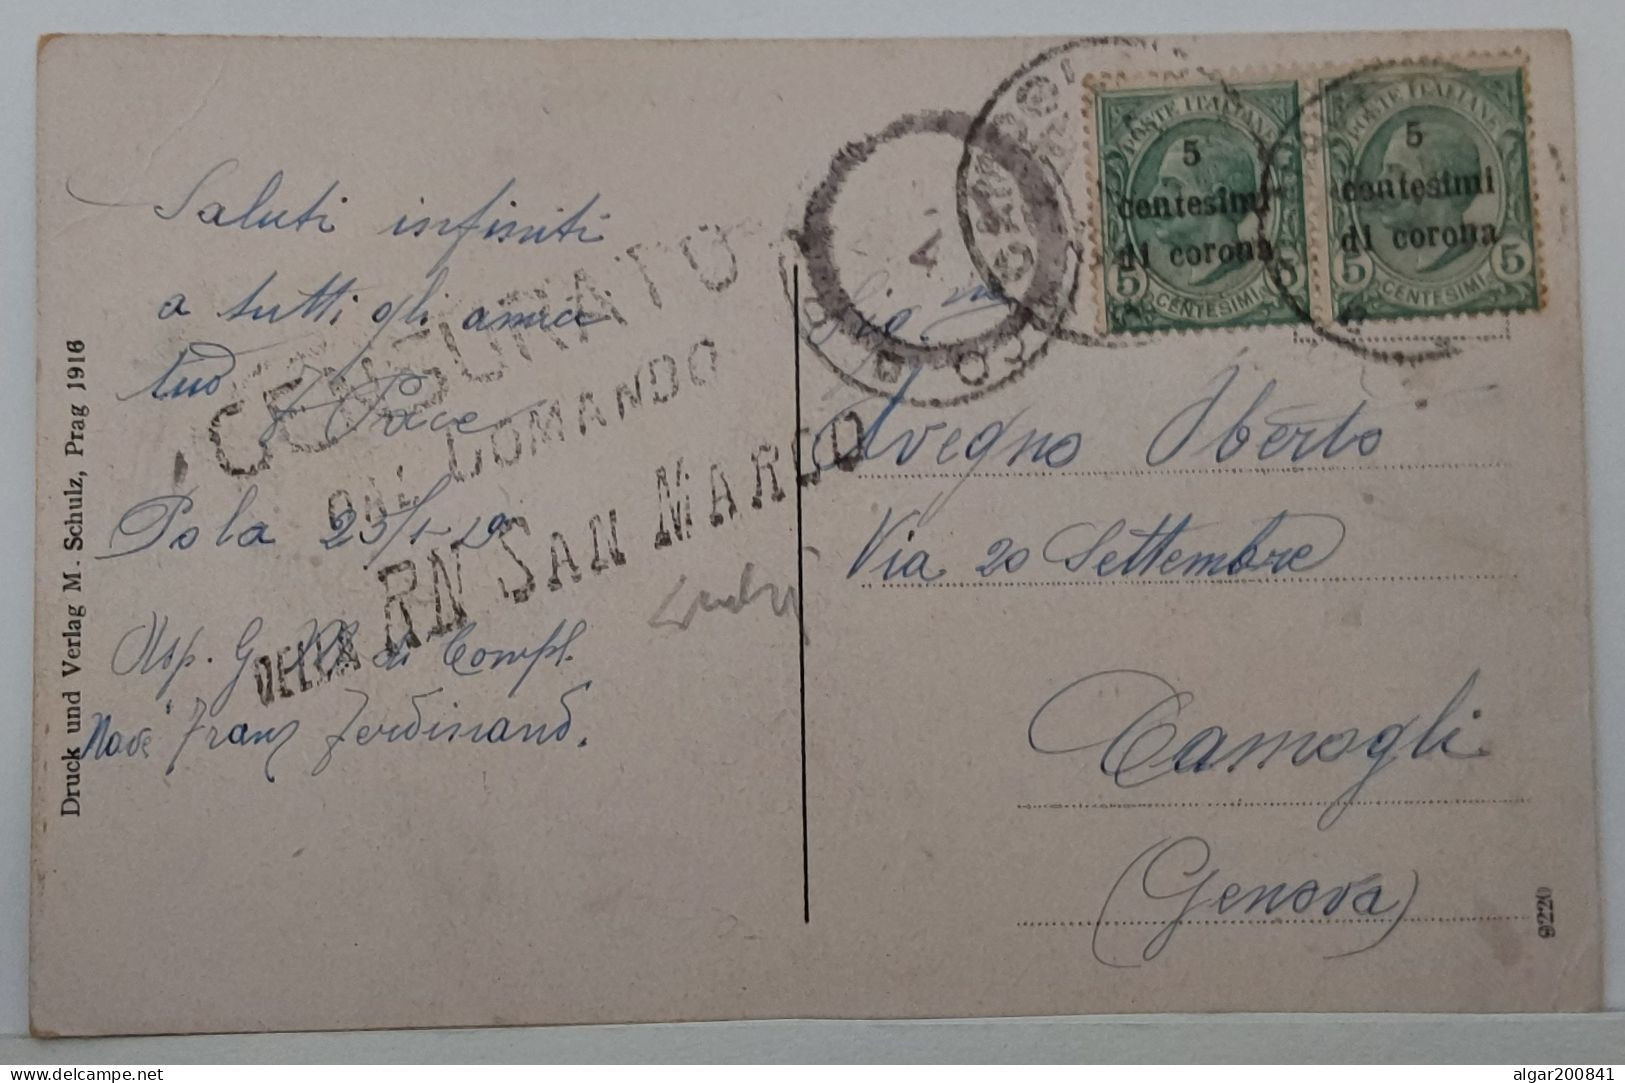 Saluti infiniti
a tutti gli amici
tuo
Pola 25/1-19
di Compl.
Nave Franz Ferdinand.
CENSURATO
DAL COMANDO
DELLA RN SAN MARCO
Druck und Verlag M. Schulz, Prag 1916
POSTE ITALIANE
5
centesimi
di corona
5 CENTESIMI 5
POSTE ITALIANE
5
centesimi
di corona
5 CENTESIMI 5
Sig.
Avegno Oberto
Via 20 Settembre
Camogli
(Genova)
9220
algar200841